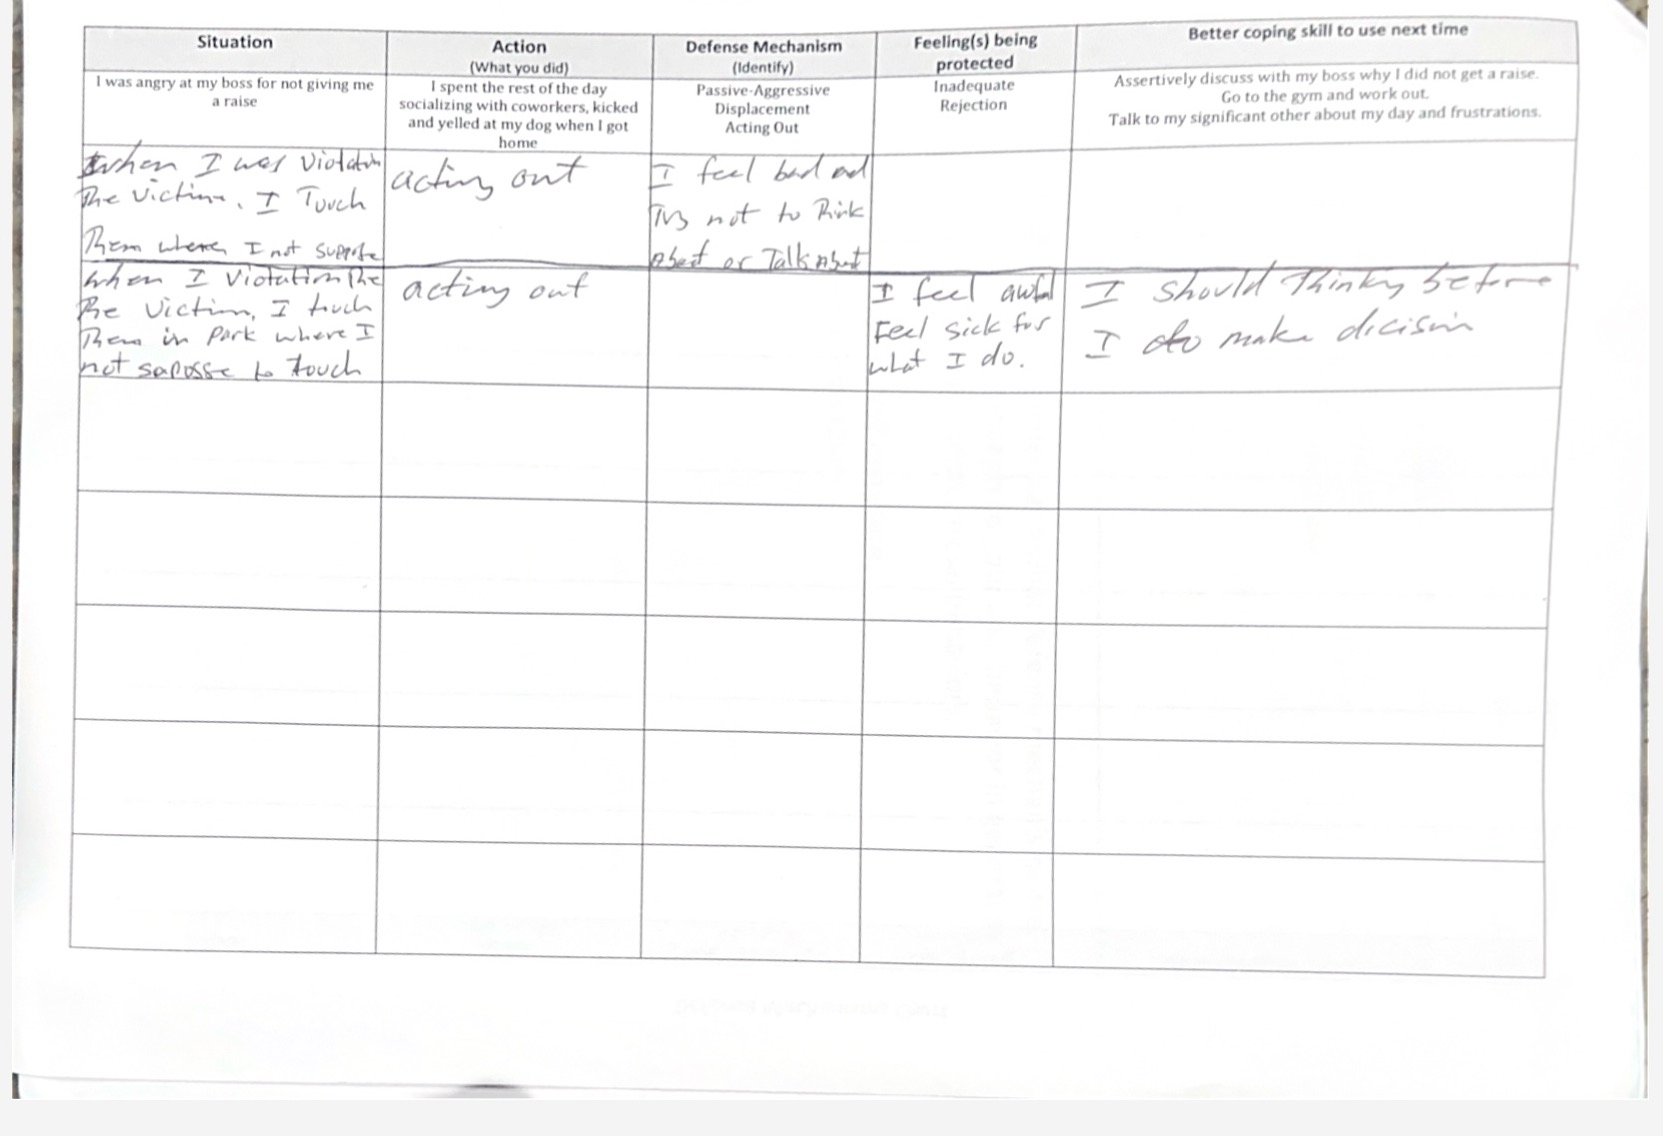 Situation
Action
(What you did)
Defense Mechanism
(Identify)
Feeling(s) being
protected
Better coping skill to use next time
I was angry at my boss for not giving me
a raise
I spent the rest of the day
socializing with coworkers, kicked
and yelled at my dog when I got
home
Passive-Aggressive
Displacement
Acting Out
Inadequate
Rejection
Assertively discuss with my boss why I did not get a raise.
Go to the gym and work out.
Talk to my significant other about my day and frustrations.
when I was Violation
The victim, I Touch
Them where I not suppose
acting out
I feel bad and
not to Think
About or Talk About
when I Violation The
The Victim, I touch
Them in Park where I
not saposse to touch
acting out
I feel awful
Feel sick for
what I do.
I should Thinky before
I do make dicision